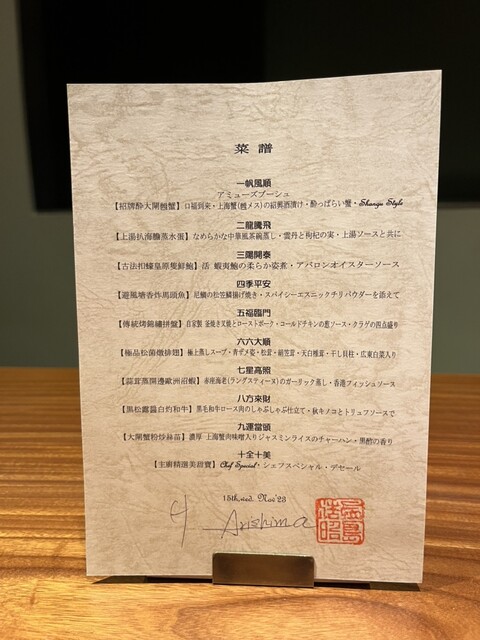 菜譜
一帆風順
アミューズブーシュ
【招牌醉大閘雌蟹】口福到来・上海蟹(雌メス)の紹興酒漬け・酔っぱらい蟹・Shangu Style
二龍騰飛
【上湯扒海膽蒸水蛋】なめらかな中華風茶碗蒸し・雲丹と枸杞の実・上湯ソースと共に
三陽開泰
【古法扣蠔皇原隻鮮鮑】活 蝦夷鮑の柔らか姿煮・アバロンオイスターソース
四季平安
【避風塘香炸馬頭魚】尼鯛の松笠鱗揚げ焼き・スパイシーエスニックチリパウダーを添えて
五福臨門
【傳統烤錦繡拼盤】自家製 釜焼き叉焼とローストポーク・コールドチキンの葱ソース・クラゲの四点盛り
六六大順
【極品松茸燉排翅】極上蒸しスープ・青ザメ姿・松茸・絹笠茸・天白椎茸・干し貝柱・広東白菜入り
七星高照
【蒜茸蒸開邊歐洲沼蝦】赤座海老(ラングスティーヌ)のガーリック蒸し・香港フィッシュソース
八方來財
【黒松露醤白灼和牛】黒毛和牛ロース肉のしゃぶしゃぶ仕立て・秋キノコとトリュフソースで
九運當頭
【大閘蟹粉炒絲苗】濃厚・上海蟹肉味噌入りジャスミンライスのチャーハン・黒酢の香り
十全十美
【主廚精選美甜寶】Chef Special・シェフスペシャル・デセール
15th.wed. Nov'23
Arishima